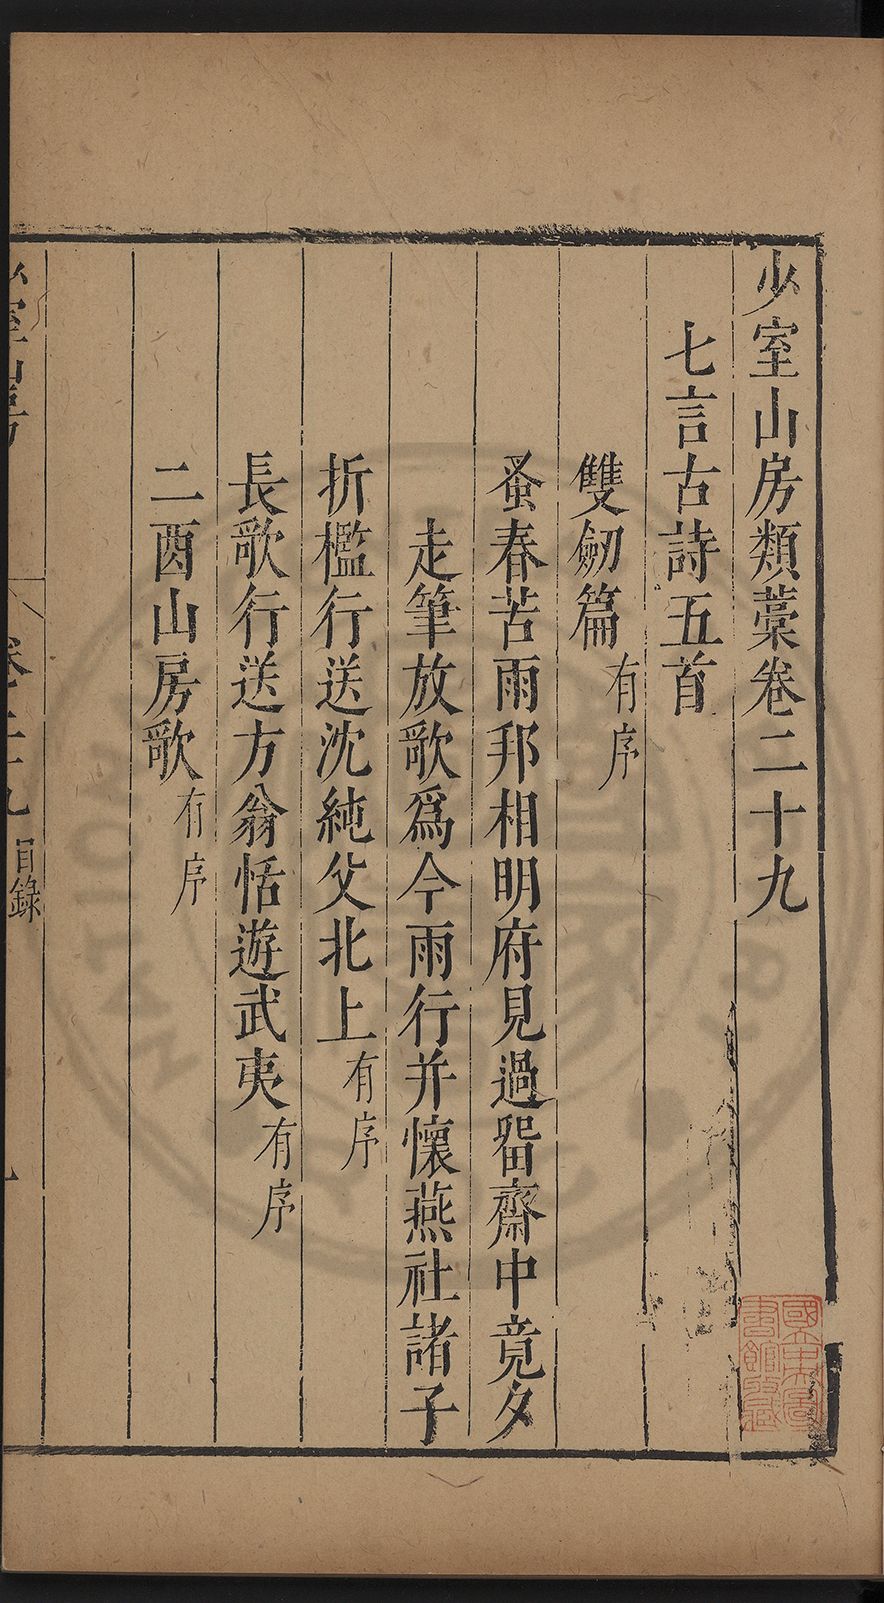 少室山房類藁卷二十九
七言古詩五首
雙劒篇有序
蚤春苦雨邦相明府見過畱齋中竟夕
走筆放歌爲今雨行并懷燕社諸子
折檻行送沈純父北上有序
長歌行送方翁恬遊武夷有序
二酉山房歌有序
少室山房
卷二十九
目錄